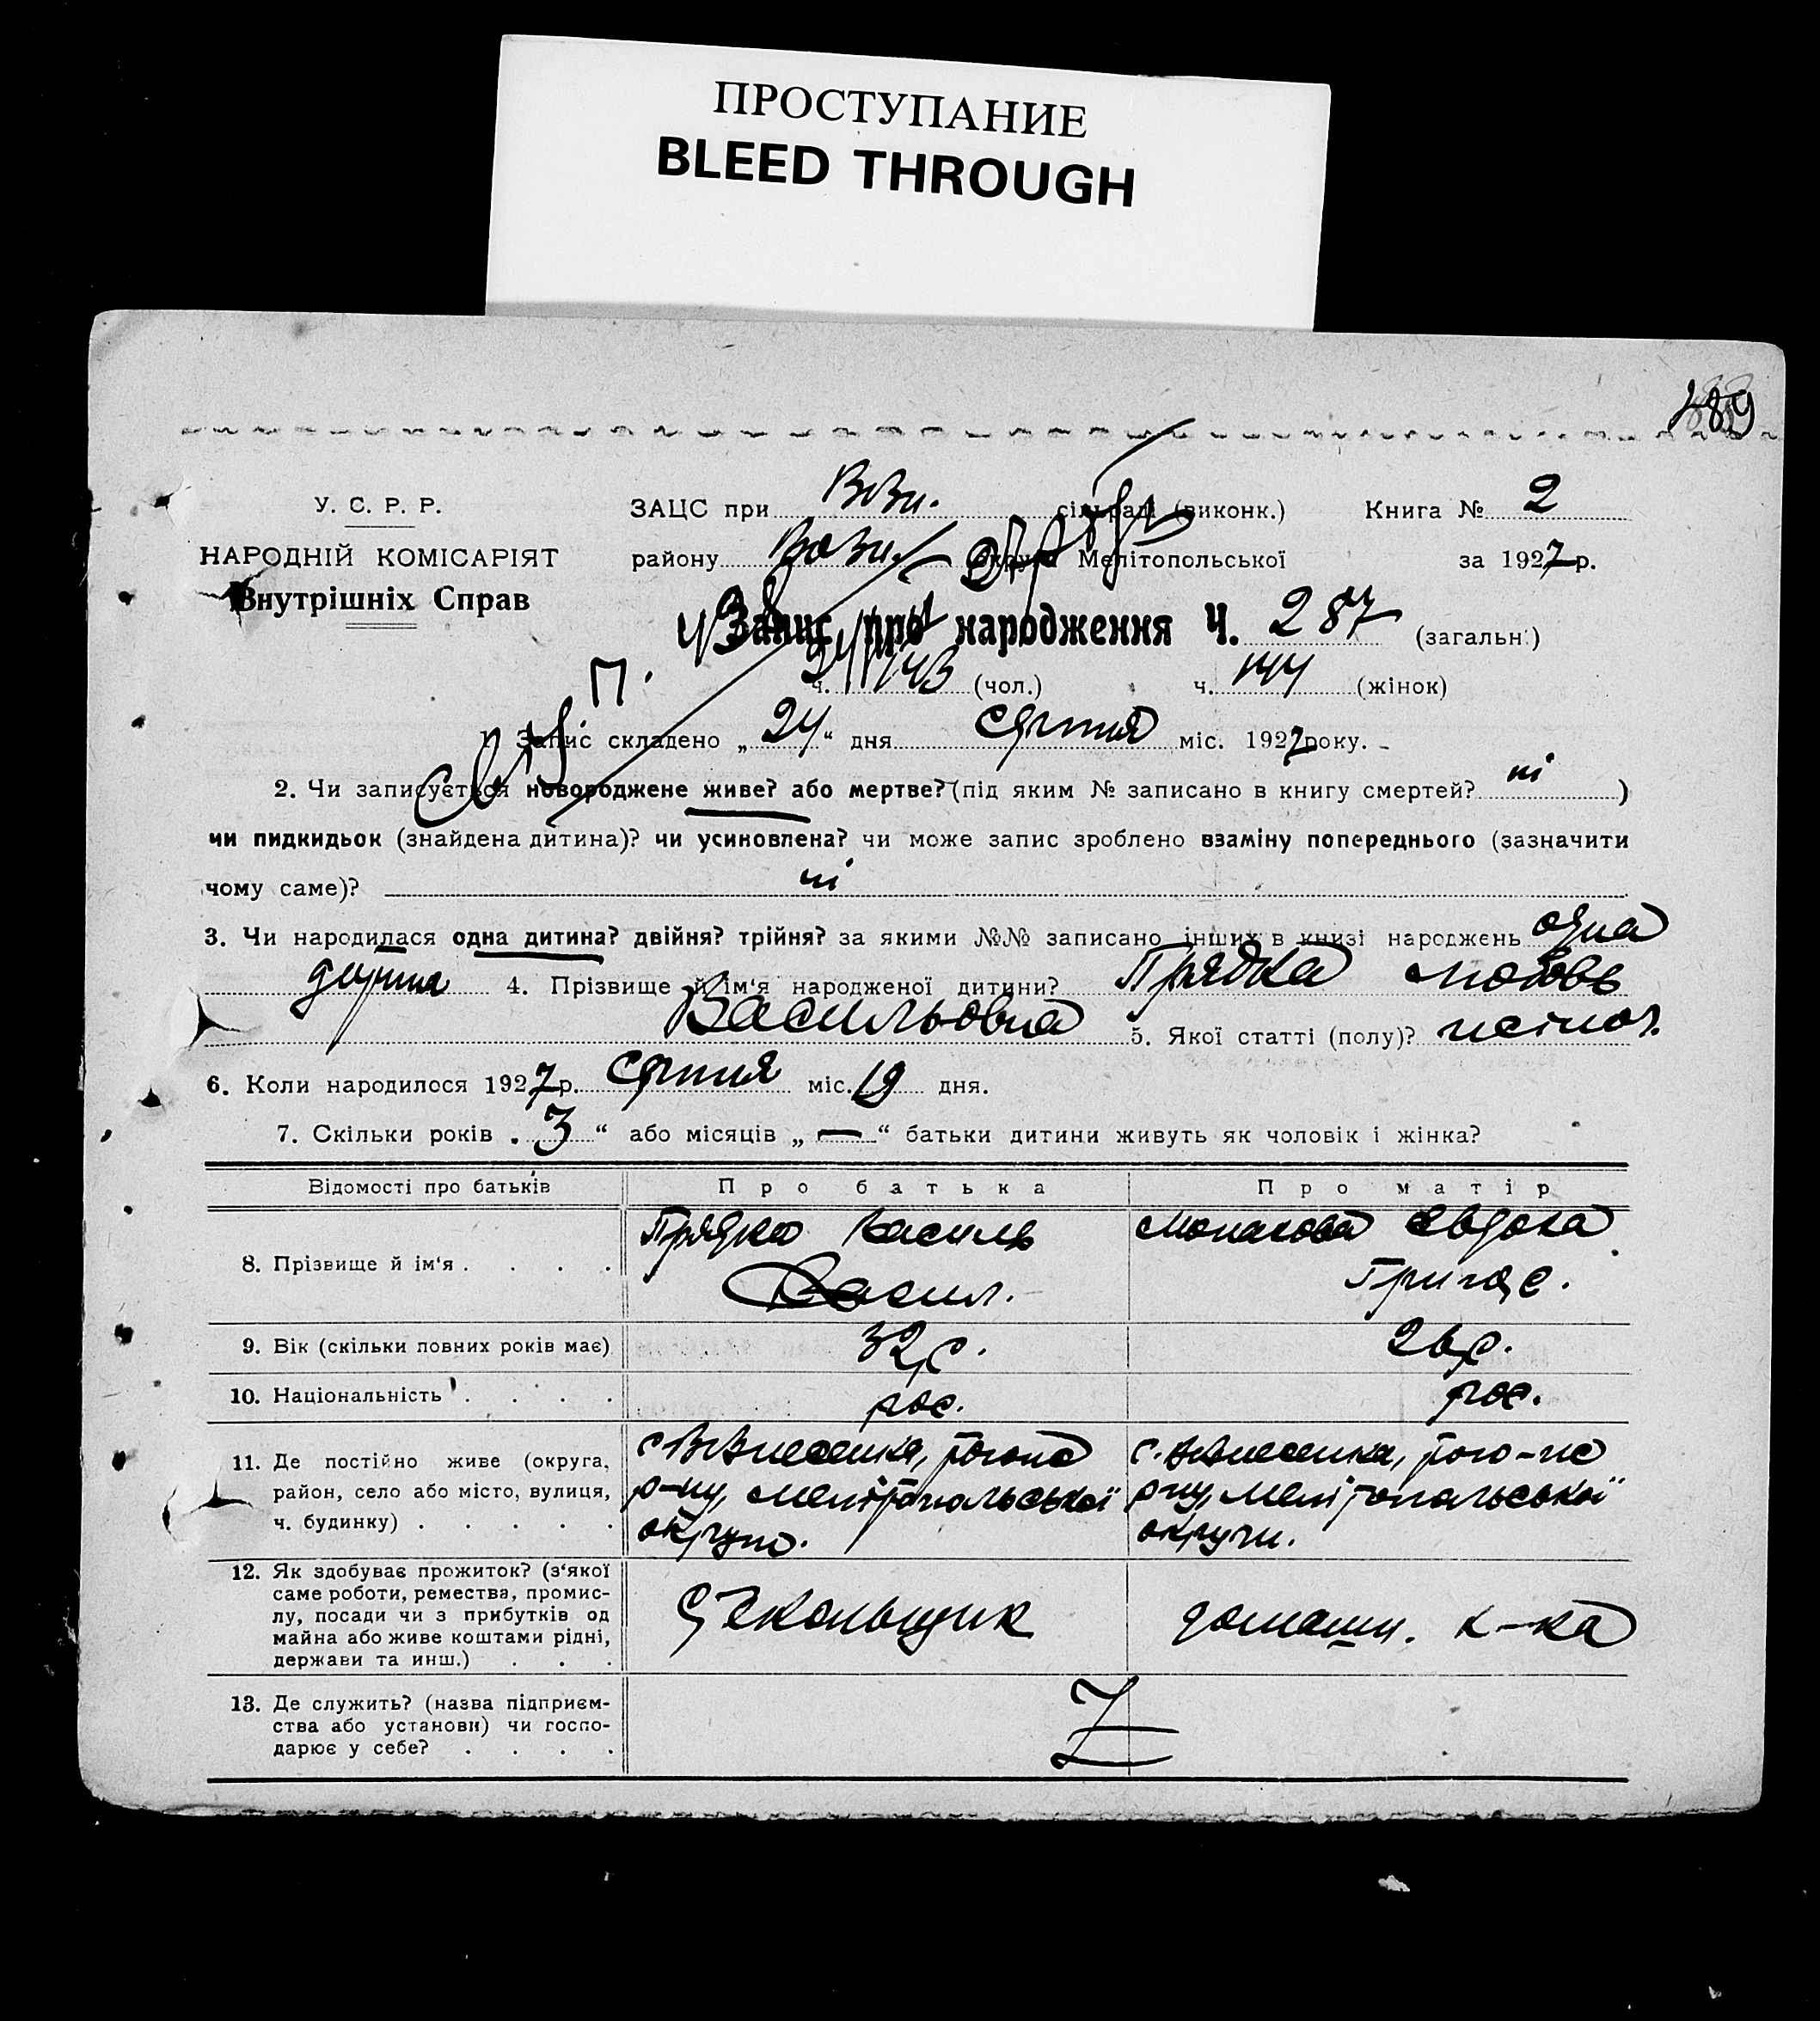 ПРОСТУПАНИЕ
BLEED THROUGH
У. С. Р. Р.
НАРОДНІЙ КОМІСАРІЯТ
Внутрішніх Справ
ЗАЦС при Возн. сільраді (виконк.) Книга № 2
району Возн. округи Мелітопольської за 1927 р.
Запис про народження Ч. 287 (загальн.)
ч. 143 (чол.) ч. 144 (жінок)
П.
1. Запис складено „24“ дня серпня міс. 1927 року.
2. Чи записується новороджене живе? або мертве? (під яким № записано в книгу смертей? ні )
чи пидкидьок (знайдена дитина)? чи усиновлена? чи може запис зроблено взаміну попереднього (зазначити
чому саме)? ні
3. Чи народилася одна дитина? двійня? трійня? за якими №№ записано інших в книзі народжень одна
дитина 4. Прізвище й ім‘я народженої дитини? Прядка Любовь
Васильовна 5. Якої статті (полу)? жіноч.
6. Коли народилося 1927 р. серпня міс. 19 дня.
7. Скільки років „3“ або місяців „—“ батьки дитини живуть як чоловік і жінка?
Відомості про батьків Про батька Про матір
8. Прізвище й ім‘я . . . . Прядка Василь Монахова Євдока
Васил. Григор.
9. Вік (скільки повних років має) 32 р. 26 р.
10. Національність . . . . рос. рос.
11. Де постійно живе (округа,
район, село або місто, вулиця,
ч. будинку) . . . . .
с. Вознесенка,
р-ну, Мелітопольської
округи.
с. Вознесенка,
р-ну, Мелітопольської
округи.
12. Як здобуває прожиток? (з‘якої
саме роботи, ремества, промис-
лу, посади чи з прибутків од
майна або живе коштами рідні,
держави та инш.) . . .
Стекольщик домашн. х-ка
13. Де служить? (назва підприєм-
ства або установи) чи госпо-
дарює у себе? . . . .